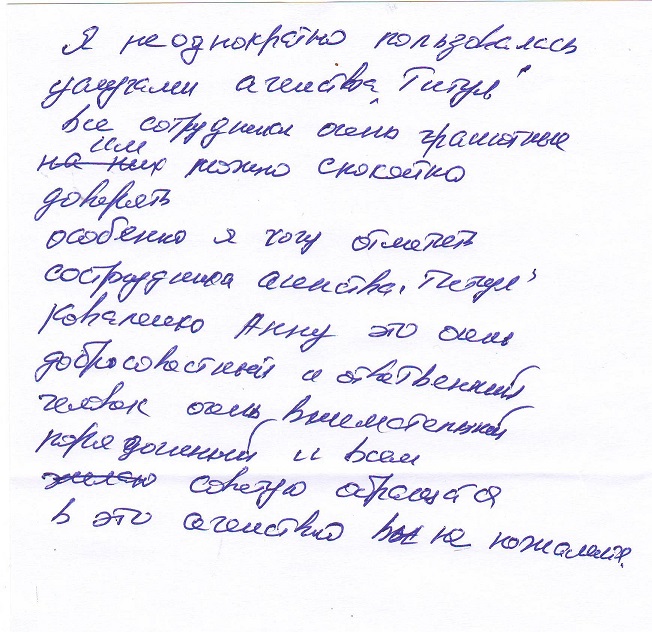 Я неоднократно пользовалась
услугами агенства "Титул"
Все сотрудники очень грамотные
им
на них можно спокойно
доверять
особенно я хочу отметить
сострудника агенства "Титул"
Коваленко Анну это очень
добросовастный и ответвенний
человек очень внимательный
порядочный и всем
желаю советую обращатся
в это агенство вы не пожалеете.